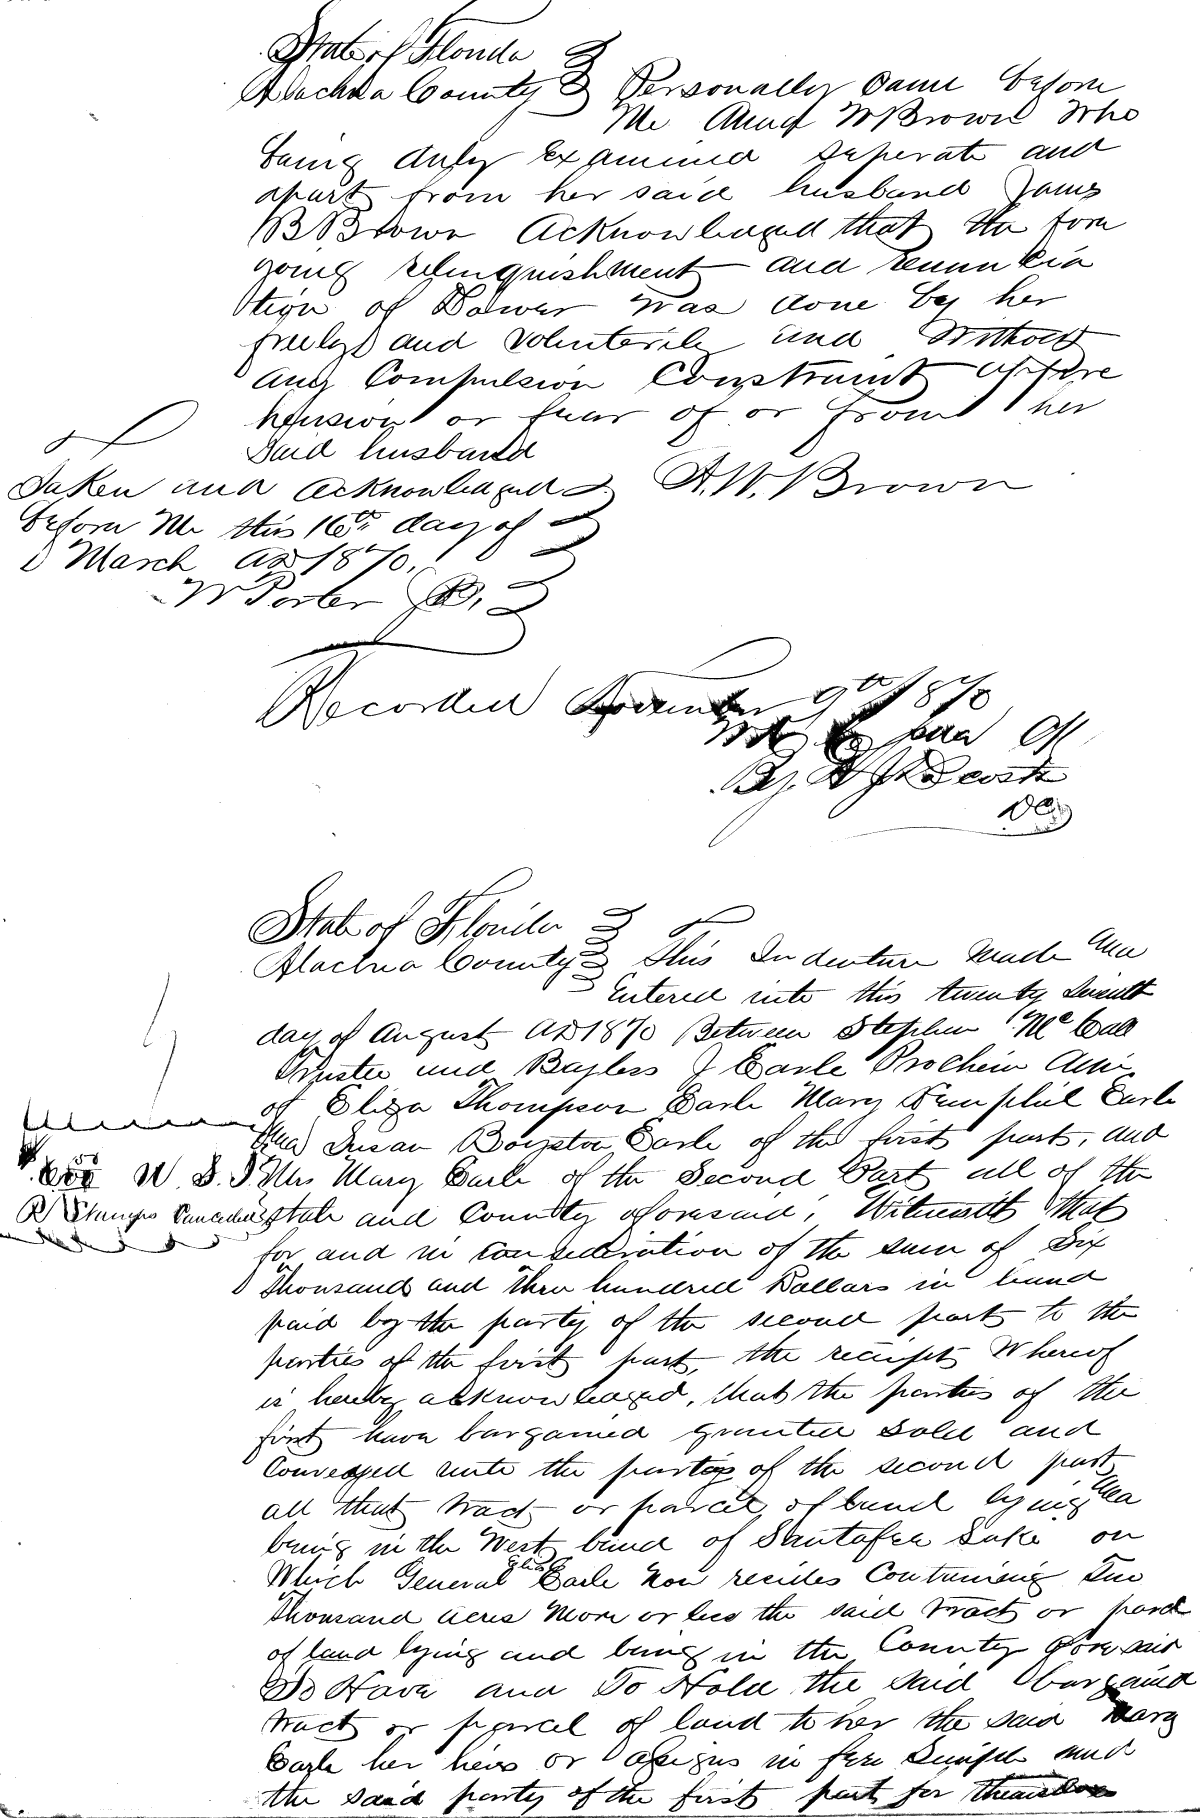 State of Florida
Alachua County Personally came before
Me W Brown Who
being duly examined seperate and
apart from her said husband James
B Brown Acknowledged that the fore
going relinquishment and renuncia
tion of Dower was done by her
freely and volunterily and Without
any Compulsion Constraint appre
hension or fear of or from her
said husband
Taken and acknowledged A. W. Brown
before Me this 16th day of
March AD 1870.
W Porter
Recorded November 9th 1870
By
DC
State of Florida
Alachua County This Indenture Made and
Entered into this twenty Seventh
day of August AD 1870 Between Stephen McCall
Trustee and Bayless J Earle Prochein Ami
of Eliza Thompson Earle Mary Hemphill Earle
and Susan Boyston Earle of the first part, and
U. S. I Mrs Mary Earle of the Second Part all of the
R Stamps Canceled state and County aforesaid; Witnesseth that
for and in consideration of the sum of Six
Thousand and three hundred Dollars in hand
paid by the party of the second part to the
parties of the first part, the receipt Whereof
is hereby acknowledged, that the parties of the
first have bargained granted sold and
Conveyed unto the party of the second part
all that tract or parcel of land lying and
being in the West bend of Santafee Lake on
Which General Elias Earle now resides Containing Two
Thousand acres More or less the said tract or parcel
of land lying and being in the County aforesaid
To Have and To Hold the said bargained
tract or parcel of land to her the said Mary
Earle her heirs or assigns in fee Simple and
the said party of the first part for themselves